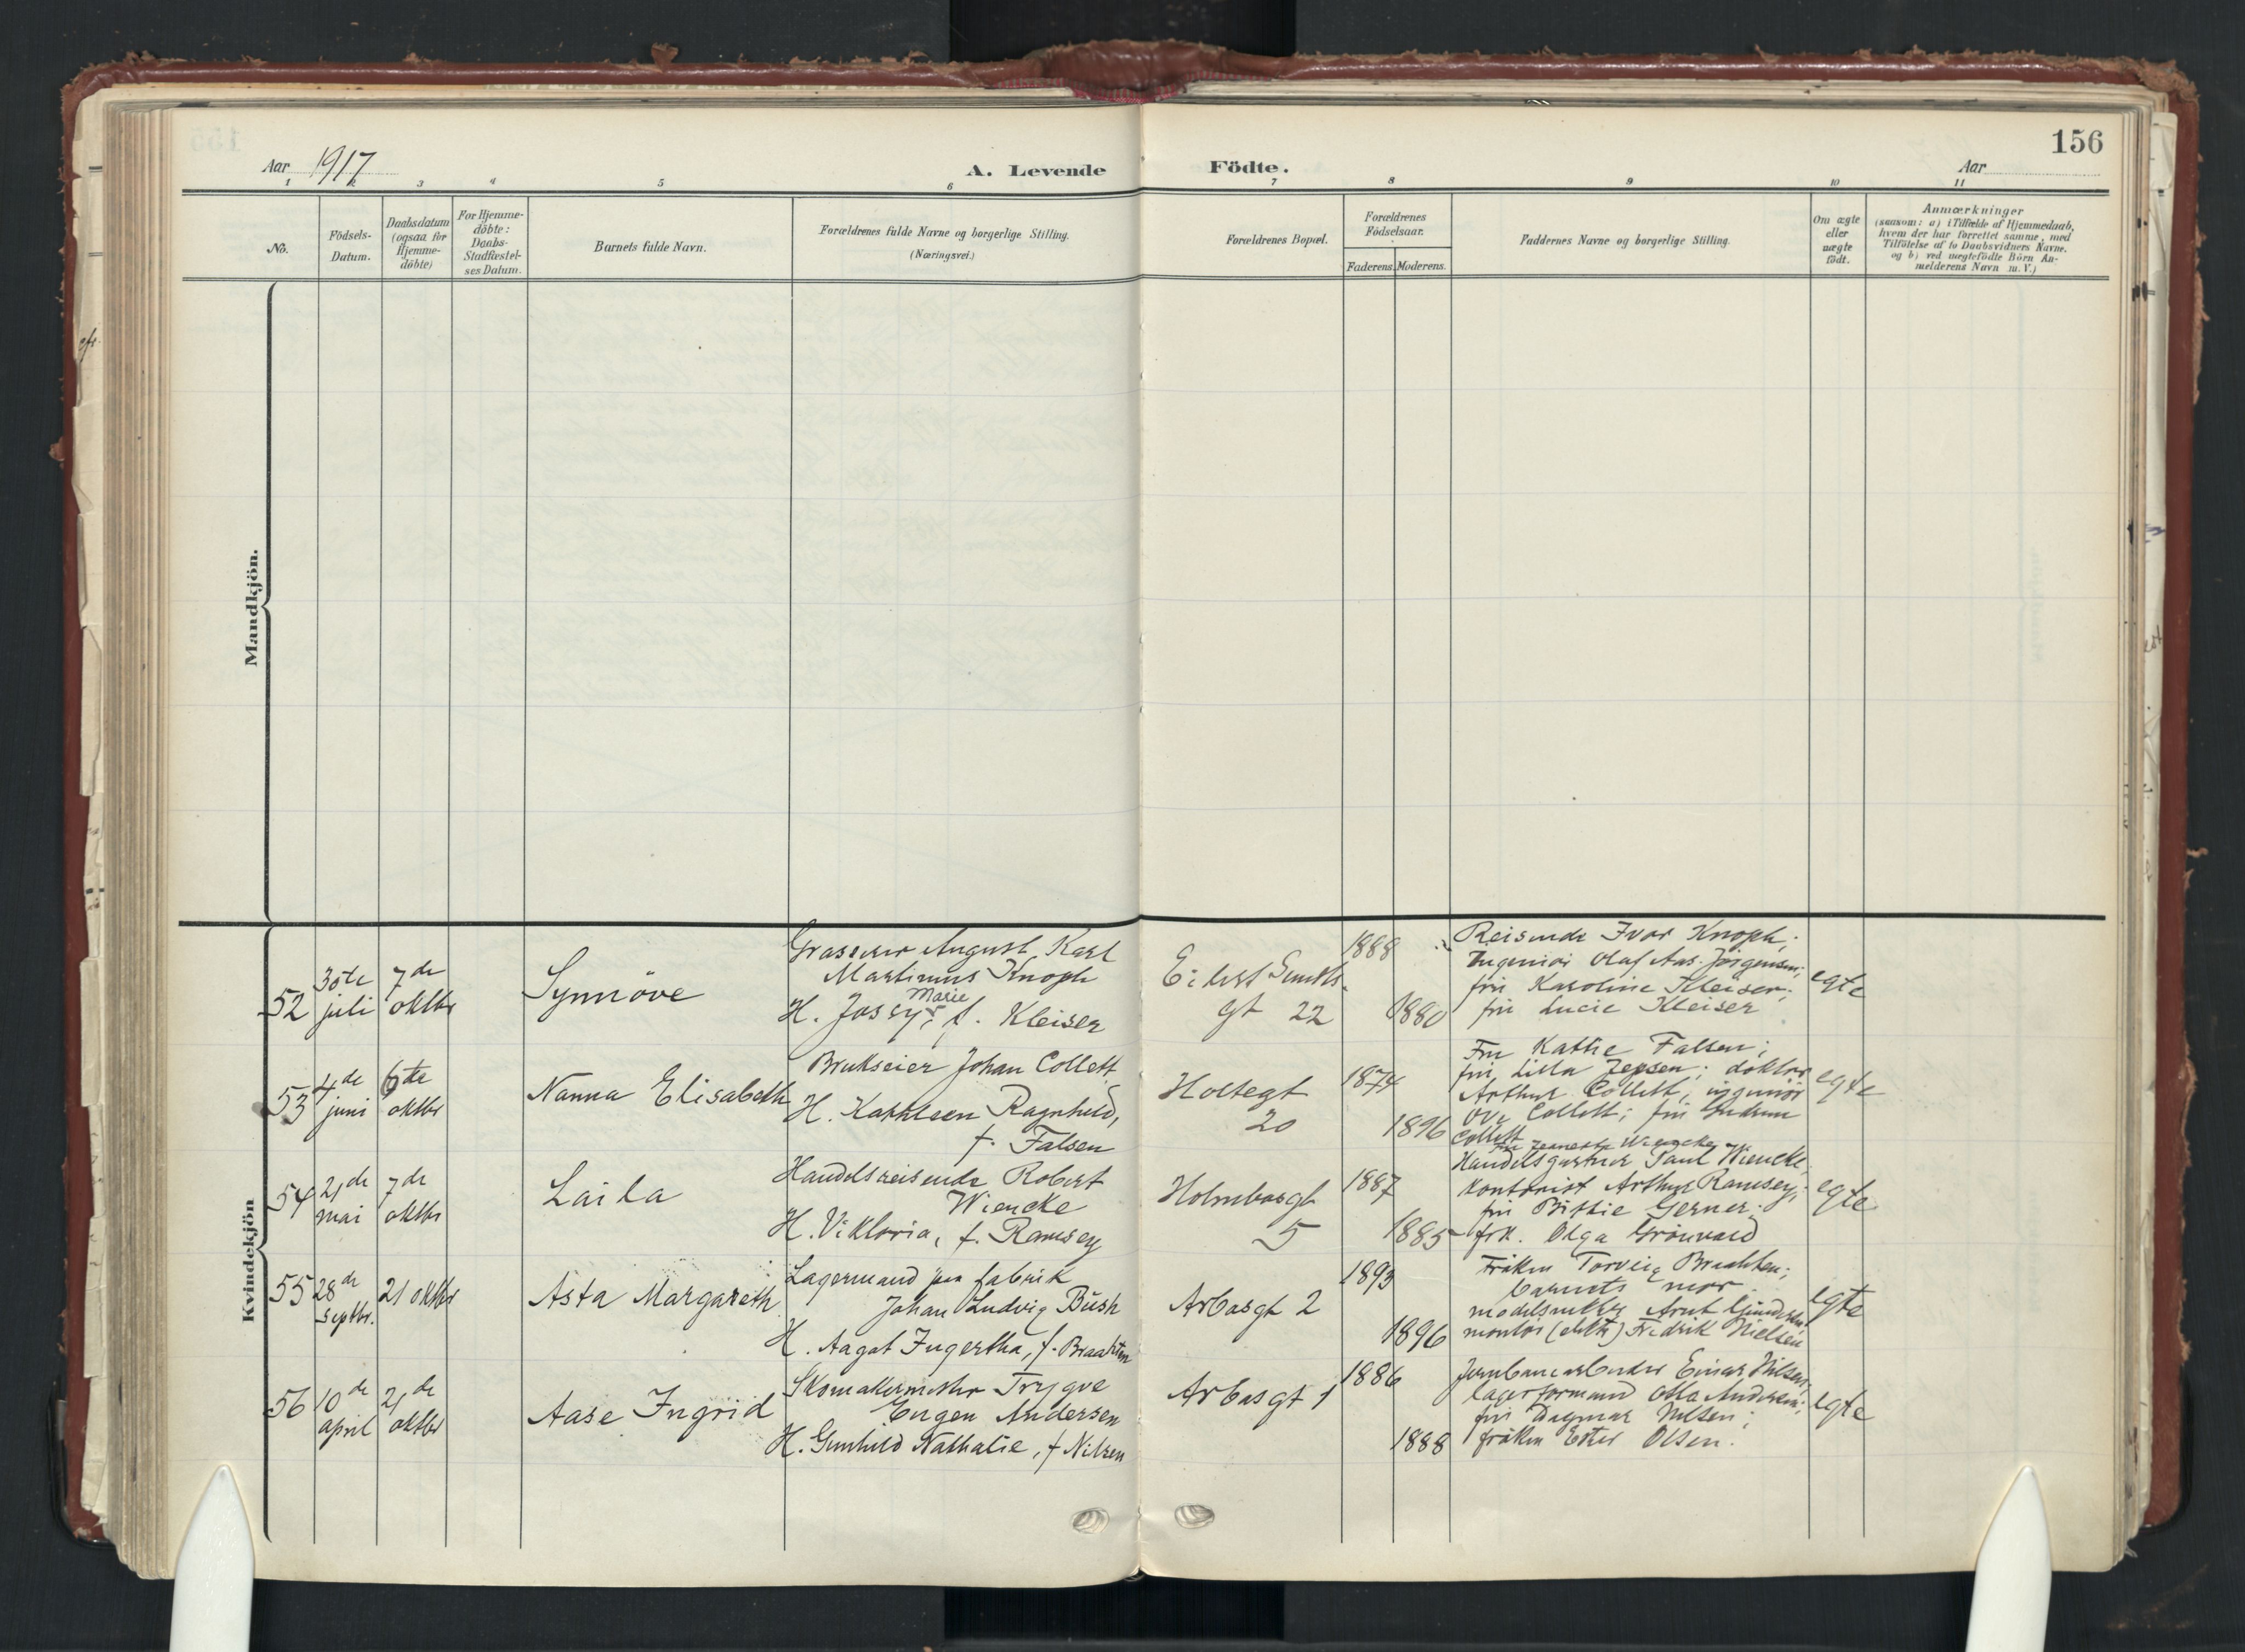 156
Aar 1917
A. Levende Födte.
Aar
1 2 3 4 5 6 7 8 9 10 11
No.
Födsels-
Datum.
Daabsdatum
(ogsaa for
Hjemme-
döbte)
For Hjemme-
döbte:
Daabs-
Stadfæstel-
ses Datum.
Barnets fulde Navn.
Forældrenes fulde Navne og borgerlige Stilling.
(Næringsvei.)
Forældrenes Bopæl.
Forældrenes
Födselsaar.
Faderens. Moderens.
Faddernes Navne og borgerlige Stilling.
Om ægte
eller
uægte
födt.
Anmærkninger
(saasom: a) i Tilfælde af Hjemmedaab,
hvem der har forrettet samme, med
Tilföielse af to Daabsvidners Navne.
og b) ved uægtefödte Börn An-
melderens Navn m. V.)
Mandkjön.
Kvindekjön
52
30te
juli
7de
oktbr
Synnöve
Grosserer August Karl
Martinius Knoph
Marie
H. Jossy, f. Kleiser
Eilert Sundts
gt 22
1888
1880
Reisende Ivar Knoph;
Ingeniör Olaf Aas-Jörgensen;
fru Karoline Kleiser;
fru Lucie Kleiser
egte
53
4de
juni
6te
oktbr
Nanna Elisabeth
Brukseier Johan Collett
H. Kathleen Ragnhild,
f. Falsen
Holtegt
20
1874
1896
Fru Kathie Falsen;
fru Lilla Jepsen; doktor
Arthur Collett, ingeniör
Ove Collett; fru Gudrun
Collett
egte
54
21de
mai
7de
oktbr
Laila
Handelsreisende Robert
Wiencke
H. Viktoria, f. Ramsey
Holmbosgt
5
1887
1885
Fru Jeanette Wiencke
Handelsgartner Paul Wiencke,
kontorist Arthur Ramsey;
fru Bittie Gerner;
frk. Olga Grönvold
egte
55
28de
septbr.
21 oktbr
Asta Margareth
Lagermand paa fabrik
Johan Ludvig Bush
H. Aagot Ingertha, f. Braathen
Arbosgt 2
1893
1896
Fröken Torveig Braathen;
barnets mor
modelsnekker Arnt Gundersen
montör (elektr) Fredrik Nielsen
egte
56
10de
april
21de
oktbr
Aase Ingrid
Skomakermester Trygve
Eugen Andersen
H. Gunhild Nathalie, f Nilsen
Arbosgt 1
1886
1888
Jernbanearbeider Einar Nilsen;
lagerformand Otto Andersen;
fru Dagmar Nilsen;
fröken Ester Olsen.
egte